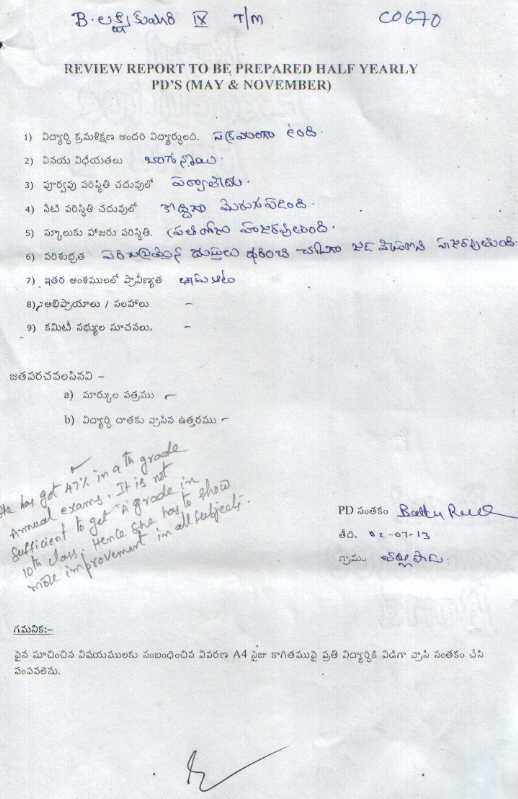 B. లక్ష్మీకుమారి IX T/M C0670
REVIEW REPORT TO BE PREPARED HALF YEARLY
PD'S (MAY & NOVEMBER)
1) విద్యార్థి క్రమశిక్షణ అందరి విద్యార్థులది. సక్రమంగా ఉంది.
2) వినయ విధేయతలు బాగున్నాయి.
3) పూర్వపు పరిస్థితి చదువులో పర్వాలేదు.
4) నేటి పరిస్థితి చదువులో కొద్దిగా మెరుగుపడింది.
5) స్కూలుకు హాజరు పరిస్థితి. ప్రతిరోజు హాజరవుతుంది.
6) పరిశుభ్రత పరిశుభ్రమైన దుస్తులు ధరించి హాజరవుతుంది.
7) ఇతర అంశములలో ప్రావీణ్యత
8) అభిప్రాయాలు / సలహాలు -
9) కమిటీ సభ్యుల సూచనలు. -
జతపరచవలసినవి –
a) మార్కుల పత్రము -
b) విద్యార్థి దాతకు వ్రాసిన ఉత్తరము -
She has got 47% in 9th grade
Annual exams. It is not
Sufficient to get 'A' grade in
10th class; Hence She has to show
more improvement in all subjects.
PD సంతకం
తేది. 02-07-13
గ్రామం
గమనిక:-
పైన సూచించిన విషయములకు సంబంధించిన వివరణ A4 సైజు కాగితముపై ప్రతి విద్యార్థికి విడిగా వ్రాసి సంతకం చేసి
పంపవలెను.